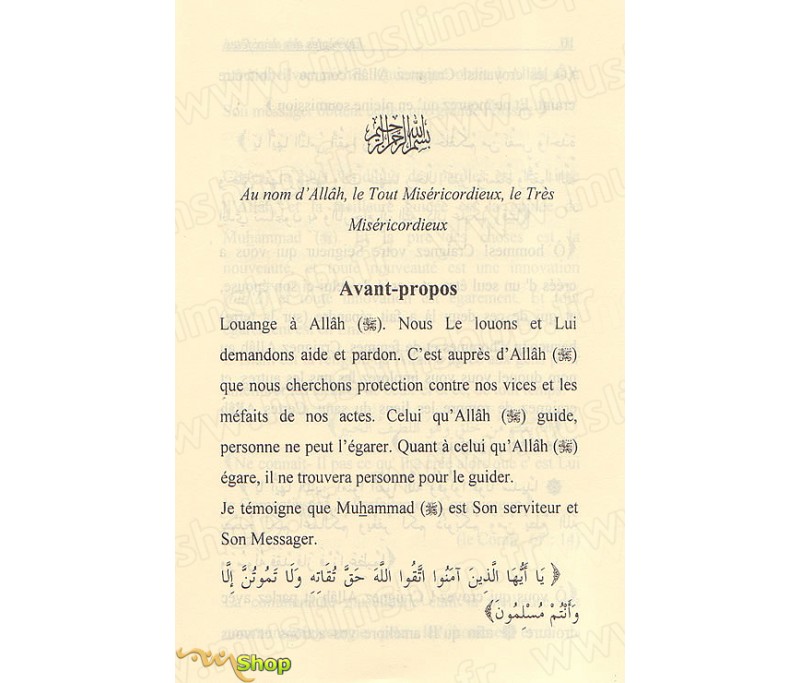 بسم الله الرحمن الرحيم
Au nom d’Allâh, le Tout Miséricordieux, le Très
Miséricordieux
Avant-propos
Louange à Allâh (ﷻ). Nous Le louons et Lui
demandons aide et pardon. C’est auprès d’Allâh (ﷻ)
que nous cherchons protection contre nos vices et les
méfaits de nos actes. Celui qu’Allâh (ﷻ) guide,
personne ne peut l’égarer. Quant à celui qu’Allâh (ﷻ)
égare, il ne trouvera personne pour le guider.
Je témoigne que Muhammad (ﷺ) est Son serviteur et
Son Messager.
﴿ يَا أَيُّهَا الَّذِينَ آمَنُوا اتَّقُوا اللَّهَ حَقَّ تُقَاتِهِ وَلَا تَمُوتُنَّ إِلَّا
وَأَنْتُمْ مُسْلِمُونَ﴾
Shop
www.muslimshop.fr